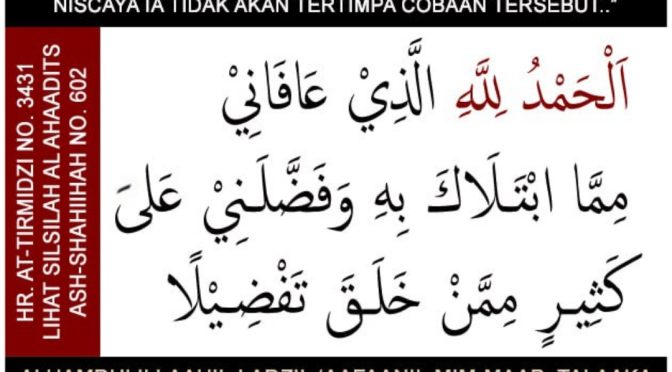 NISCAYA IA TIDAK AKAN TERTIMPA COBAAN TERSEBUT.."
HR. AT-TIRMIDZI NO. 3431
LIHAT SILSILAH AL AHAADITS
ASH-SHAHIIHAH NO. 602
اَلْحَمْدُ لِلَّهِ الَّذِيْ عَافَانِيْ
مِمَّا ابْتَلَاكَ بِهِ وَفَضَّلَنِيْ عَلَىَ
كَثِيرٍ مِمَّنْ خَلَقَ تَفْضِيْلًا